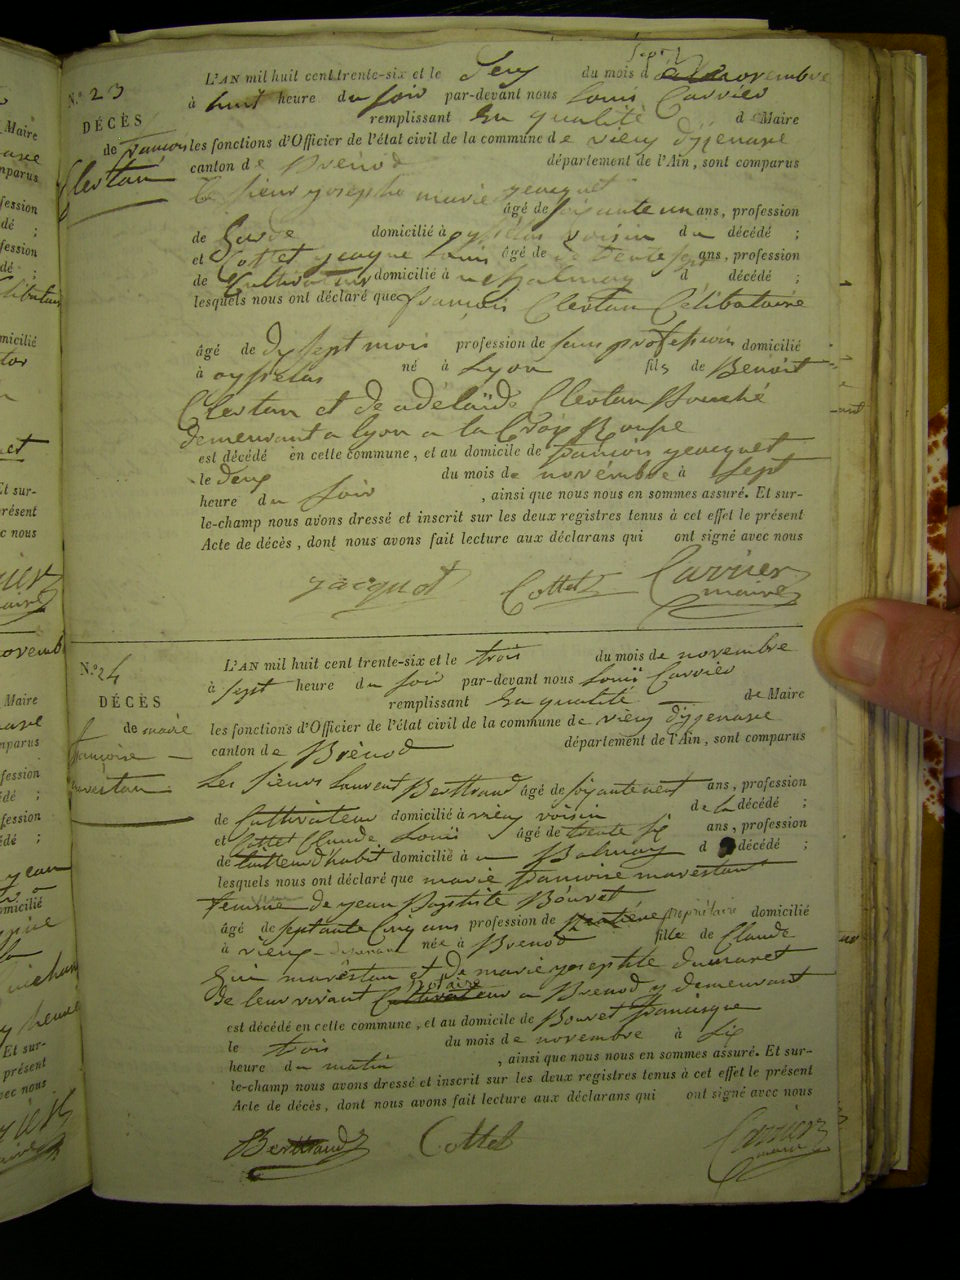 N.° 23
DÉCÈS
de françois
Clestan
L'AN mil huit cent trente-six et le Deux du mois de novembre
à huit heure du soir par-devant nous Louis Carrier
remplissant En qualité de Maire
les fonctions d'Officier de l'état civil de la commune de vieu dyzenave
canton de Brénod département de l'Ain, sont comparus
Le sieur yosephe marie yeacquet
âgé de soixante un ans, profession
de Garde domicilié à oysselas voisin du décédé ;
et Cottet yeacque Louis âgé de trente sept ans, profession
de Cultivateur domicilié à d décédé ;
lesquels nous ont déclaré que françois Clestan Célibataire
âgé de Dysept mois profession de sans profession domicilié
à oysselas né à Lyon fils de Benoit
Clestan et de adélaïde Clestan Bouché
demeurant a lyon a la Croix Rousse
est décédé en cette commune, et au domicile de francois yeacquet
le deux du mois de novembre à sept
heure du soir , ainsi que nous nous en sommes assuré. Et sur-
le-champ nous avons dressé et inscrit sur les deux registres tenus à cet effet le présent
Acte de décès, dont nous avons fait lecture aux déclarans qui ont signé avec nous
yacquet Cottet Carrier
maire
N.° 24
DÉCÈS
de marie
françoise
marestan
L'AN mil huit cent trente-six et le trois du mois de novembre
à sept heure du soir par-devant nous Louis Carrier
remplissant En qualité de Maire
les fonctions d'Officier de l'état civil de la commune de vieu dyzenave
canton de Brénod département de l'Ain, sont comparus
Les sieurs Laurent Berttrand âgé de soixante neuf ans, profession
de Cultivateur domicilié à vieu voisin de La décédé ;
et Cottet Claude Louis âgé de trente six ans, profession
de tailleur d'habit domicilié à Balmay d décédé ;
lesquels nous ont déclaré que marie francoise marestan
femme de yean Baptiste Bouvet
âgé de septante Cinq ans profession de propriétaire domicilié
à vieu dizenave née à Brenod fille de Claude
marestan et de marie yosephte dumaret
de leur vivant notaire a Brenod y demeurant
est décédé en cette commune, et au domicile de Bouvet francisque
le trois du mois de novembre à six
heure du matin , ainsi que nous nous en sommes assuré. Et sur-
le-champ nous avons dressé et inscrit sur les deux registres tenus à cet effet le présent
Acte de décès, dont nous avons fait lecture aux déclarans qui ont signé avec nous
Berttrand Cottet Carrier
maire